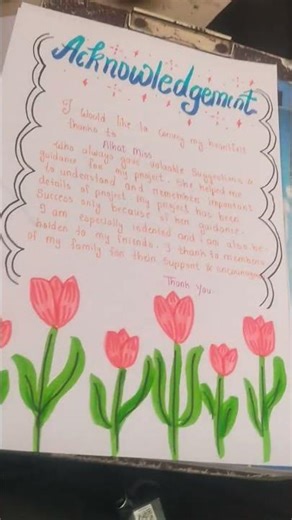 Acknowledgement
I would like to convey my heartfelt
thanks to
Nihat Miss
who always gave valuable suggestions &
guidance for my project. She helped me
to understand and remember important
details of project. My project has been
success only because of her guidance.
I am especially indented and I am also be
holden to my friends. I thank to members
of my family for their support & encouragement
Thank You.